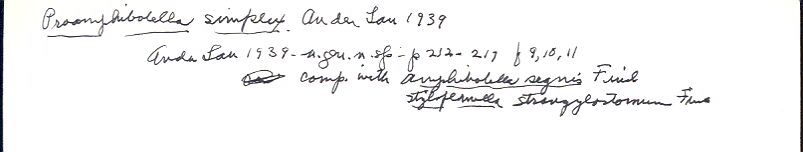 Proamphibolella simplex. An der Lan 1939
An der Lan 1939 - n. gen. n. sp - p 212 - 217 f 9, 10, 11
comp. with amphibolella segnis Find
stylopfannella strongylostomum Find